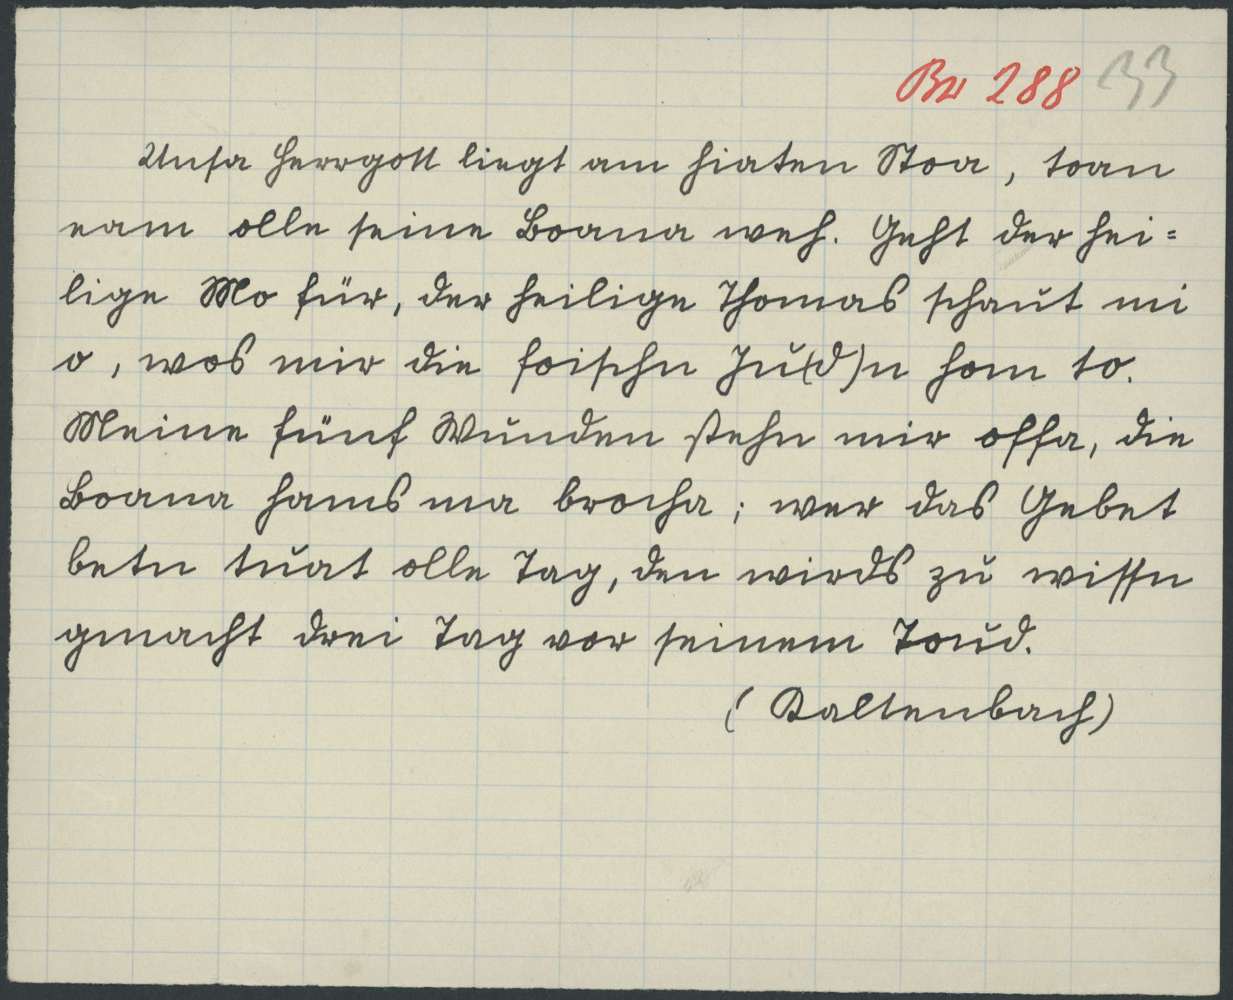 Br 288 33
Unsa Herrgott liegt am hiaten Stoa, toan
eam olle seine Boana weh. Geht der hei=
lige Mo für, der heilige Thomas schaut mi
o, wos mir die foischn Ju(d)n hom to.
Meine fünf Wunden stehn mir offa, die
Boana hams ma brocha; wer das Gebet
betn tuat olle Tag, den wirds zu wissn
gmacht drei Tag vor seinem Toud.
(Kaltenbach)